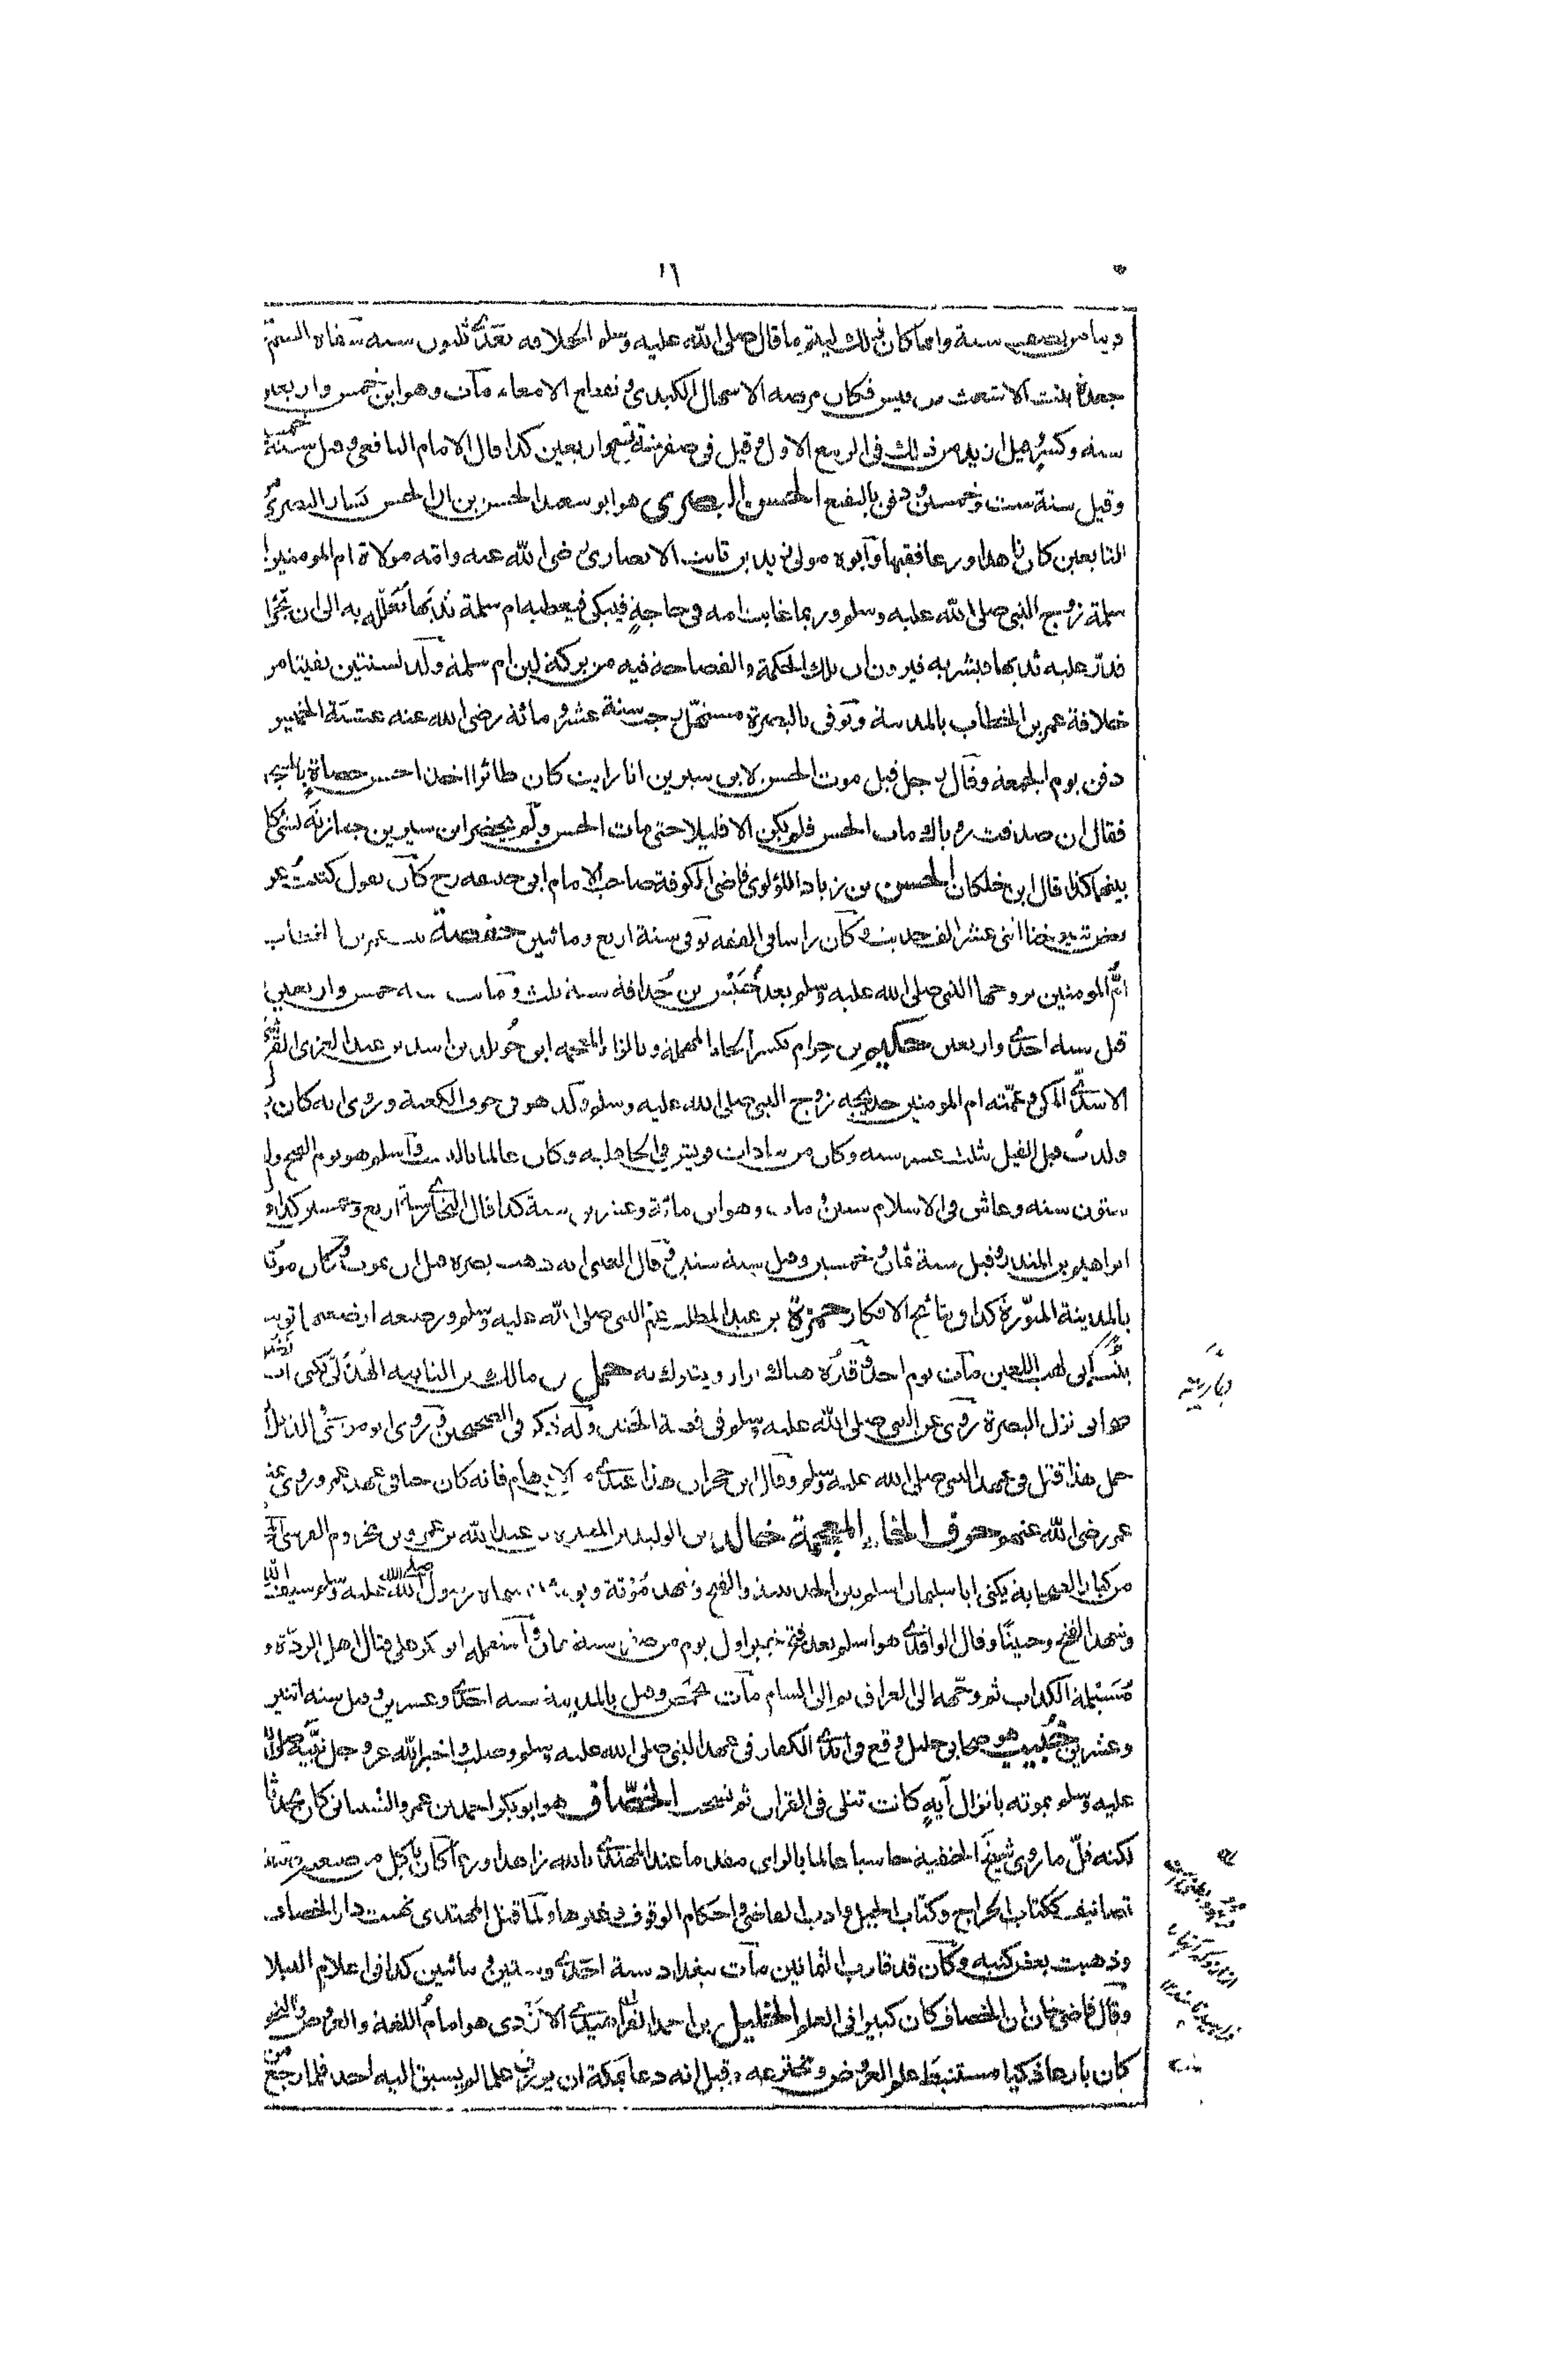 ١٦
قريبا من نصف سنة وانما كان ذلك ليتم ما قال صلى الله عليه وسلم الخلافة بعدى ثلثون سنة سقاه السم
جعدة بنت الاشعث بن قيس فكان مرضه الاسهال الكبدى و الامعاء مات وهو ابن خمس واربعين
سنة وكسر قيل ازيد من ذلك فى الربيع الاول وقيل فى صفر سنة تسع واربعين كذا قال الامام اليافعى وقيل سنة خمسين
وقيل سنة ست وخمسين ودفن بالبقيع الحسن البصرى هو ابو سعيد الحسن بن ابى الحسن يسار البصرى
التابعين كان زاهدا ورعا فقيها وابوه مولى زيد بن ثابت الانصارى رضى الله عنه وامه مولاة ام المومنين ام
سلمة زوج النبى صلى الله عليه وسلم وربما غابت امه فى حاجةٍ فيبكى فيعطيه ام سلمة ثديها تعلّله به الى ان تجئ
فدرّ عليه ثديها فيشربه فيرون ان تلك الحكمة والفصاحة فيه من بركة لبن ام سلمة ولد لسنتين بقيتا من
خلافة عمر بن الخطاب بالمدينة وتوفى بالبصرة مستهل رجب سنة عشر ومائة رضى الله عنه عشية الخميس
دفن يوم الجمعة وقال رجل قبل موت الحسن لابن سيرين انا رايت كان طائرا اخذ احسن حصاةٍ بالمسجد
فقال ان صدقت رؤياك مات الحسن فلم يكن الا قليلا حتى مات الحسن ولم يحضر ابن سيرين جنازته لشئ كان
بينهما كذا قال ابن خلكان الحسن بن زياد اللؤلوى قاضى الكوفة صاحب الامام ابى حنيفة رح كان يقول كتبت عن
اثنى عشر الف حديث وكان راسا فى الفقه توفى سنة اربع ومائتين حفصة بنت عمر بن الخطاب
ام المومنين تزوجها النبى صلى الله عليه وسلم بعد خُنَيس بن حُذافة سنة ثلث وماتت سنة خمس واربعين
قيل سنة احدى واربعين حكيم بن حِزام بكسر الحاء المهملة وبالزاء المعجمة ابن خُويلد بن اسد بن عبد العزى القرشى
الاسدى المكى وعمّته ام المومنين خديجة زوج النبى صلى الله عليه وسلم ولد هو فى جوف الكعبة وروى انه كان
ولدت قبل الفيل بثلث عشر سنة وكان من سادات قريش فى الجاهلية وكان عالما بالنسب واسلم هو يوم الفتح وله
ستون سنة وعاش فى الاسلام ستين ومات وهو ابن مائة وعشرين سنة كذا قال البخارى سنة اربع وخمسين كذا قال
ابراهيم بن المنذر وقيل سنة ثمان وخمسين وقيل سنة ستين وقال القتبى انه ذهب بصره قبل ان يموت وكان موته
بالمدينة المنوّرة كذا فى نتائج الافكار حمزة بن عبد المطلب عم النبى صلى الله عليه وسلم ورضيعه ارضعتهما ثويبة
ابى لهب اللعين مات يوم احد وقبره هناك يزار ويتبرك به حمل بن مالك بن النابغة الهذلى يكنى ابا نضلة
هو ابن نزل البصرة روى عن النبى صلى الله عليه وسلم فى قصة الجنين وله ذكر فى الصحيحين وروى ابو موسى
حمل هذا قتل فى عهد النبى صلى الله عليه وسلم وقال ابن حجر ان هذا عندى من الاوهام فانه كان حيا فى عهد عمر وروى عنه
عمر رضى الله عنهم حرف الخاء المعجمة خالد بن الوليد بن المغيرة بن عبد الله بن عمرو بن مخزوم القرشى
من كبار الصحابة يكنى ابا سليمان اسلم بين الحديبية والفتح وشهد مُوْتة سماه رسول الله صلى الله عليه وسلم سيف الله
وشهد الفتح وحينًا وقال الواقدى هو اسلم بعد فتح خيبر اول يوم من صفر سنة ثمان واستعمله ابو بكر على قتال اهل الردّة و
مُسَيْلمة الكذاب ثم وجّهه الى العراق ثم الى الشام مات بحمص وقيل بالمدينة سنة احدى وعشرين وقيل سنة اثنين
وعشرين خُبَيب هو صحابى جليل وقع فى ايدى الكفار فى عهد النبى صلى الله عليه وسلم وصلب واخبر الله عز وجل نبيّه صلى الله
عليه وسلم بموته بانزال آيةٍ كانت تتلى فى القران ثم نسخت الخصّاف هو ابو بكر احمد بن عمرو الشيبانى كان محدّثا
لكنه قلّ ما روى شيخ الحنفية حاسبا عالما بالراى مقدما عند المهتدى بالله زاهدا ورعا كان ياكل من صنعته
تصانيف ككتاب الخراج وكتاب الحيل وادب القاضى واحكام الوقوف وغيرها ولما قتل المهتدى نهبت دار الخصاف
وذهبت بعض كتبه وكان قد قارب الثمانين مات ببغداد سنة احدى وستين ومائتين كذا فى اعلام النبلاء
وقال قاضى خان ان الخصاف كان كبيرا فى العلم الخليل بن احمد الفراهيدى الازدى هو امام اللغة والعروض والنحو
كان بارعا ذكيا مستنبط علم العروض ومخترعه وقيل انه دعا بمكة ان يرزق علما لم يسبق اليه احد فلما رجع من